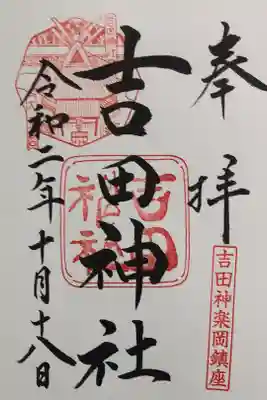 奉拝
吉田神楽岡鎮座
吉田神社
吉田神社
令和二年十月十八日